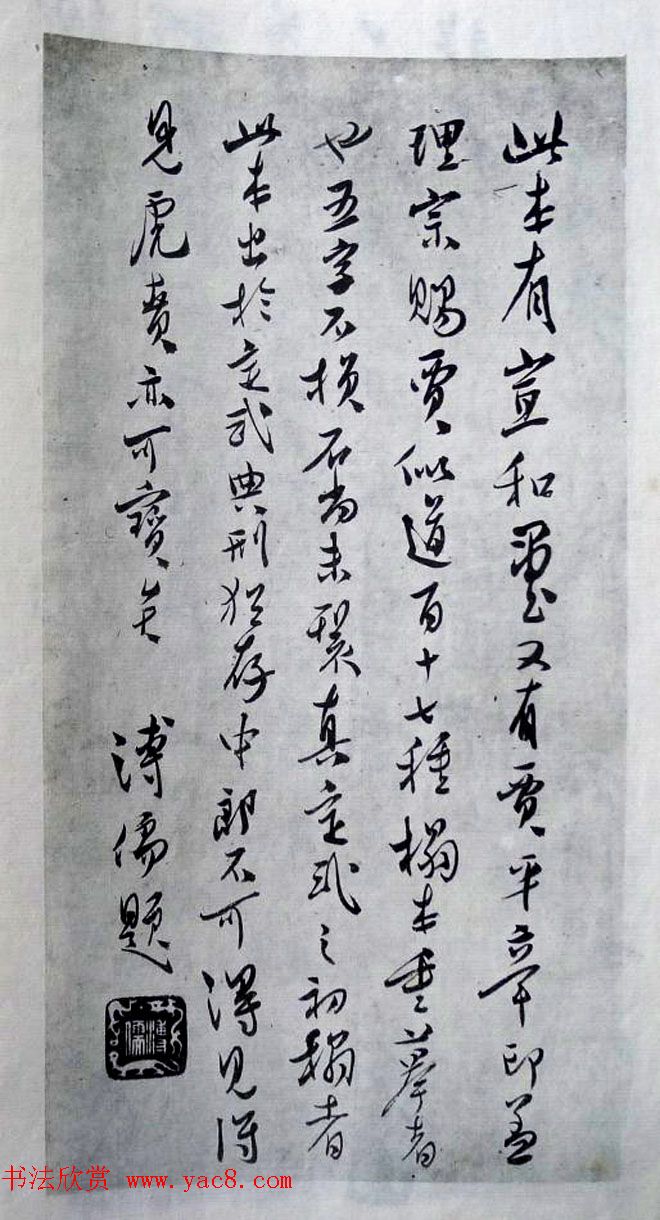 此本有宣和璽又有賈平章印蓋
理宗賜賈似道百十七種榻本重摹者
也五字不損石尚未裂真定武之初榻者
此本出於定武典刑猶存中郎不可得見得
見虎賁亦可寶矣 溥儒題
溥儒
书法欣赏 www.yac8.com